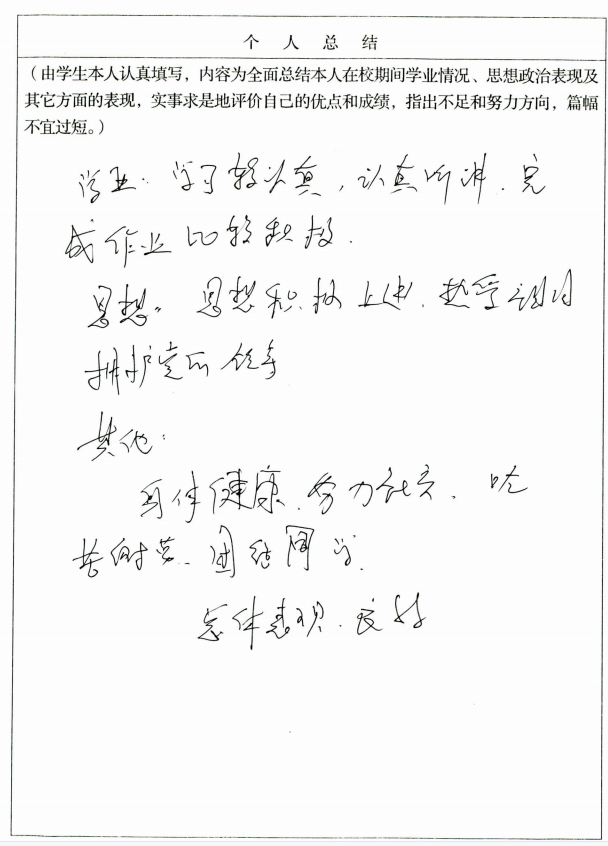 个人总结
（由学生本人认真填写，内容为全面总结本人在校期间学业情况、思想政治表现及
其它方面的表现，实事求是地评价自己的优点和成绩，指出不足和努力方向，篇幅
不宜过短。）
学业：学习较认真，认真听讲、完
成作业比较积极．
思想：思想积极上进．热爱祖国
拥护党的领导
其他：
身体健康、努力社交、吃
苦耐劳、团结同学．
总体表现．良好